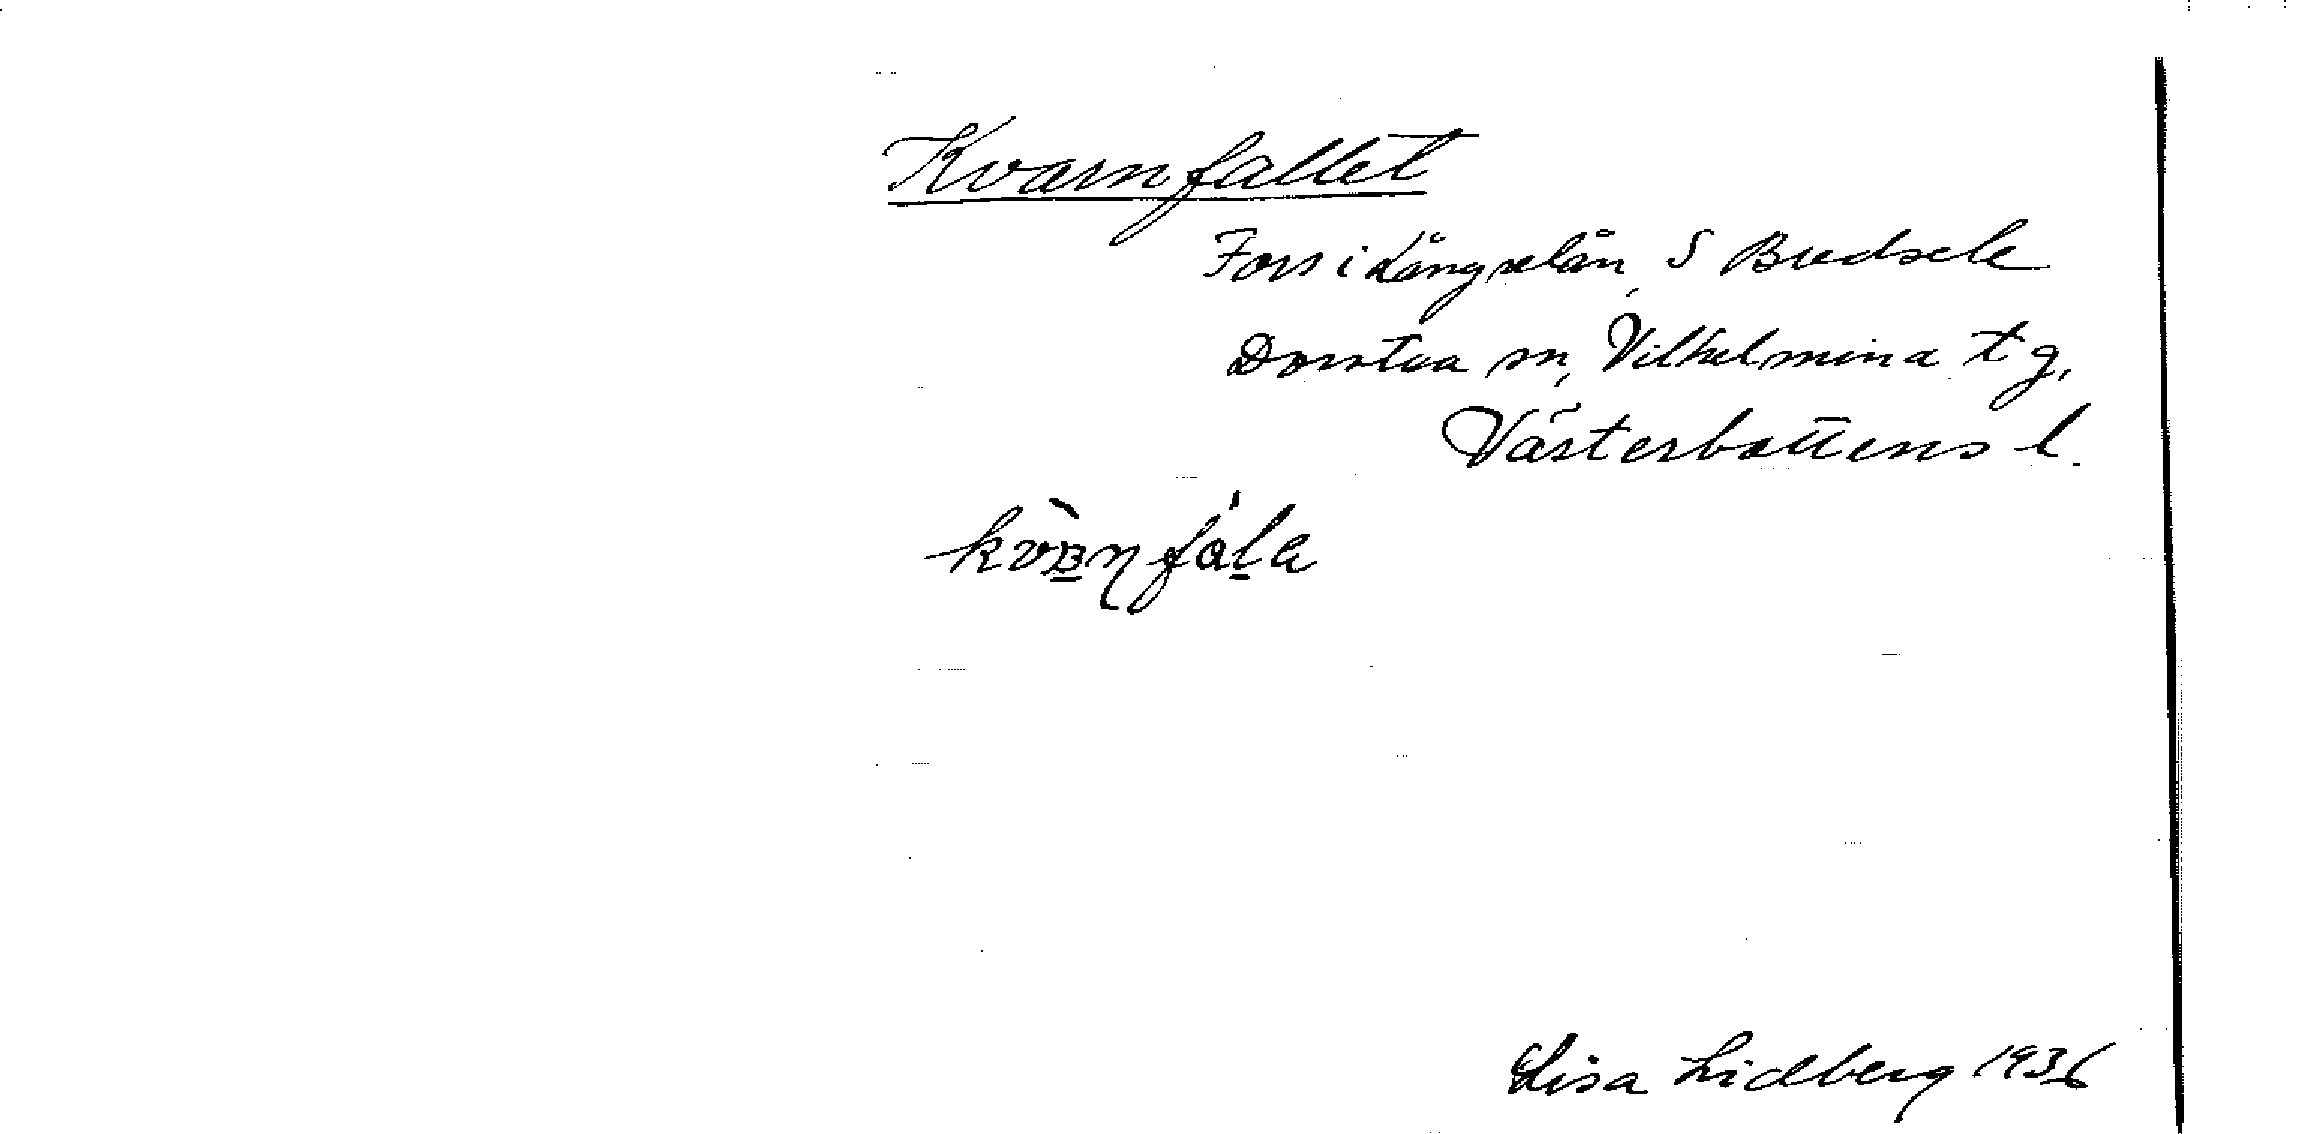 Kvarnfallet
Fors i Långselån, S Bredsele
Dorotea sn, Vilhelmina tg,
Västerbottens l.
Lisa Lidberg 1936